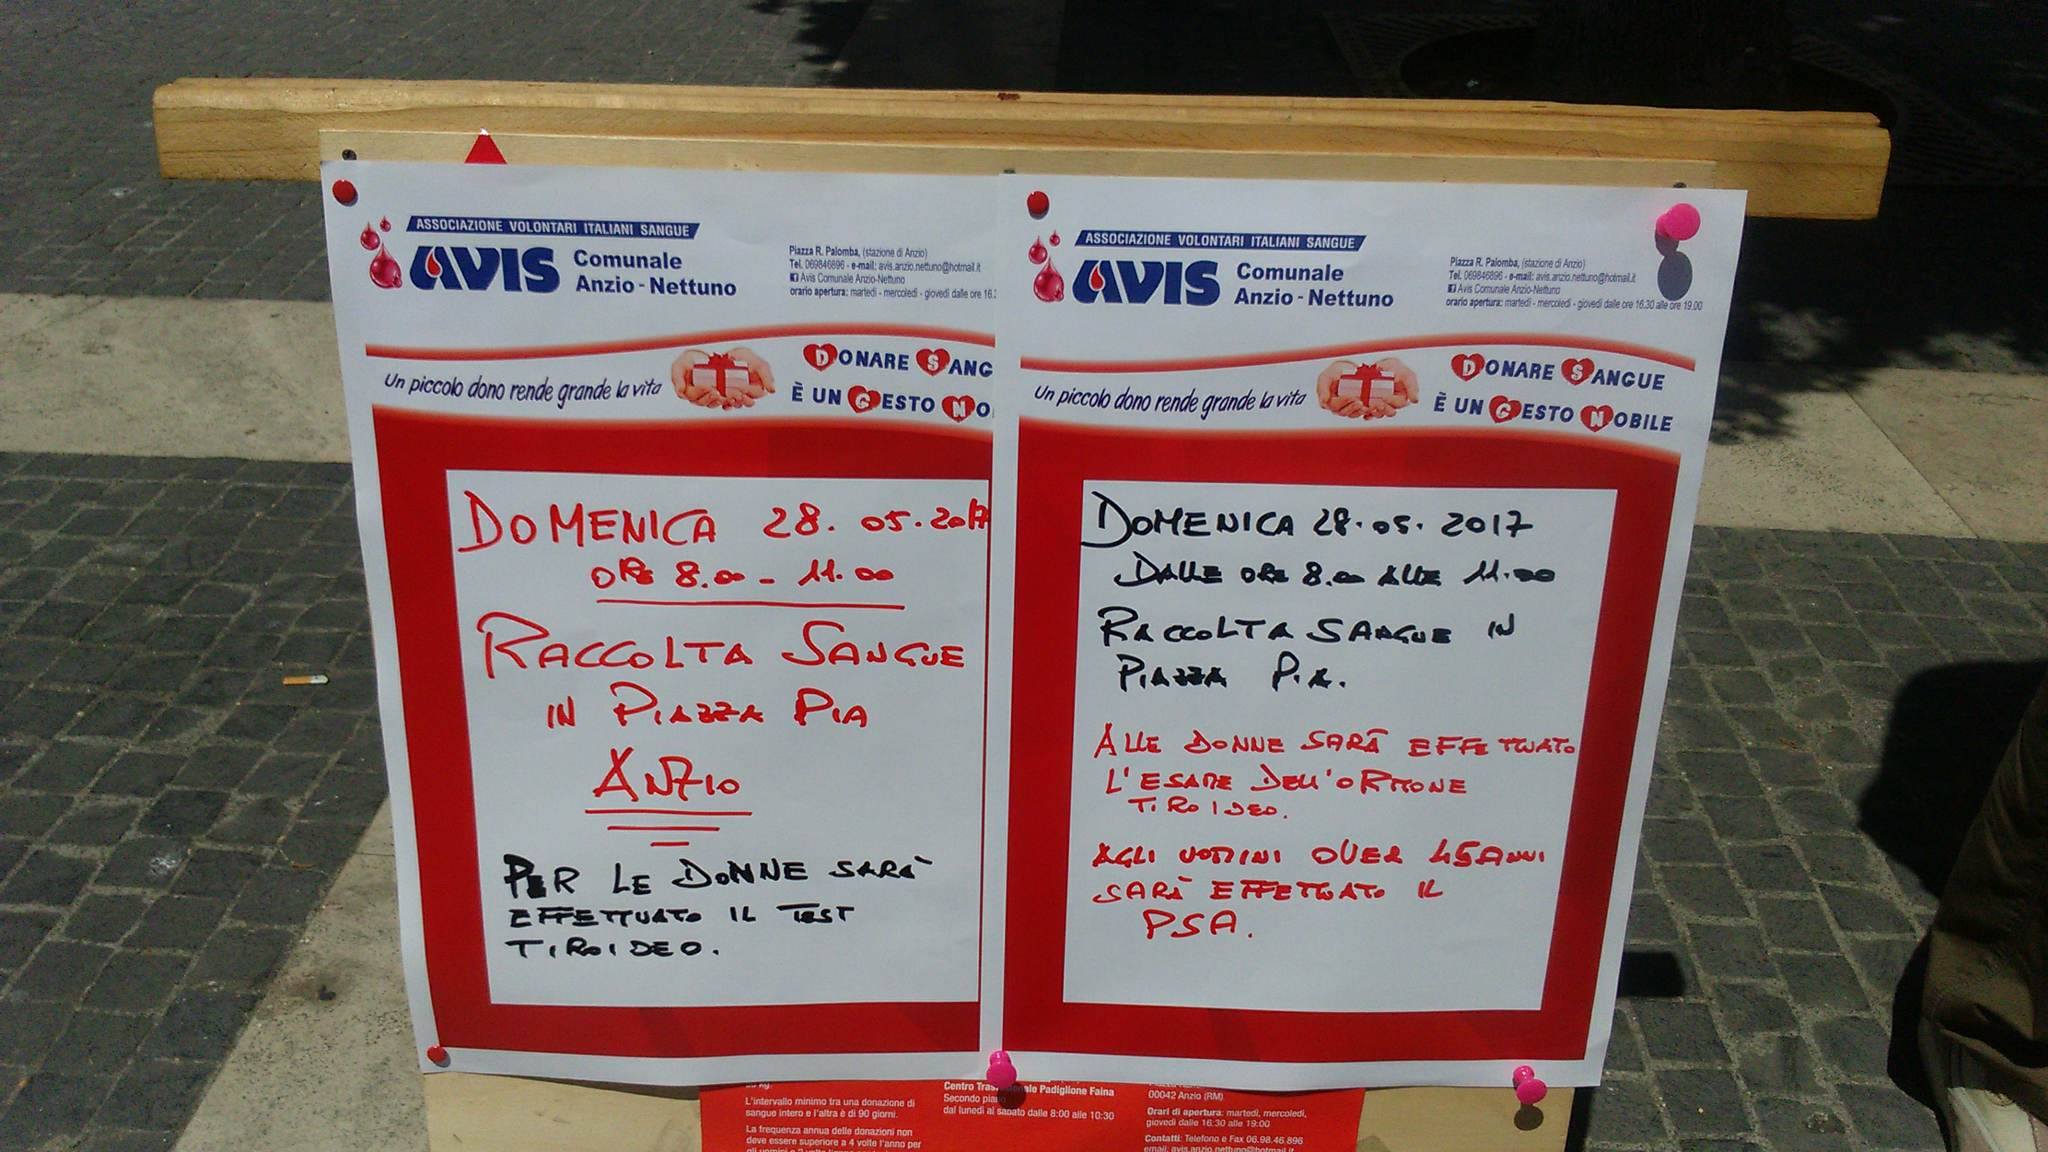 ASSOCIAZIONE VOLONTARI ITALIANI SANGUE
AVIS Comunale
Anzio - Nettuno
Piazza R. Palomba, (stazione di Anzio)
Tel. 069846896 - e-mail: avis.anzio.nettuno@hotmail.it
Avis Comunale Anzio-Nettuno
orario apertura: martedì - mercoledì - giovedì dalle ore 16.
Un piccolo dono rende grande la vita
DONARE SANG
È UN GESTO NO
DOMENICA 28.05.2017
ORE 8.00 - 11.00
RACCOLTA SANGUE
IN PIAZZA PIA
ANZIO
PER LE DONNE SARÀ
EFFETTUATO IL TEST
TIROIDEO.
ASSOCIAZIONE VOLONTARI ITALIANI SANGUE
AVIS Comunale
Anzio - Nettuno
Piazza R. Palomba, (stazione di Anzio)
Tel. 069846896 - e-mail: avis.anzio.nettuno@hotmail.it
Avis Comunale Anzio-Nettuno
orario apertura: martedì - mercoledì - giovedì dalle ore 16.30 alle ore 19.00
Un piccolo dono rende grande la vita
DONARE SANGUE
È UN GESTO NOBILE
DOMENICA 28.05.2017
DALLE ORE 8.00 ALLE 11.00
RACCOLTA SANGUE IN
PIAZZA PIA.
ALLE DONNE SARÀ EFFETTUATO
L'ESAME DELL'ORMONE
TIROIDEO.
AGLI UOMINI OVER 45 ANNI
SARÀ EFFETTUATO IL
PSA.
L'intervallo minimo tra una donazione di
sangue intero e l'altra è di 90 giorni.
La frequenza annua delle donazioni non
deve essere superiore a 4 volte l'anno per
Centro Tras nale Padiglione Faina
Secondo piano
dal lunedì al sabato dalle 8:00 alle 10:30
00042 Anzio (RM)
Orari di apertura: martedì, mercoledì,
giovedì dalle 16:30 alle 19:00
Contatti: Telefono e Fax 06.98.46.896
email: avis.anzio.nettuno@hotmail.it